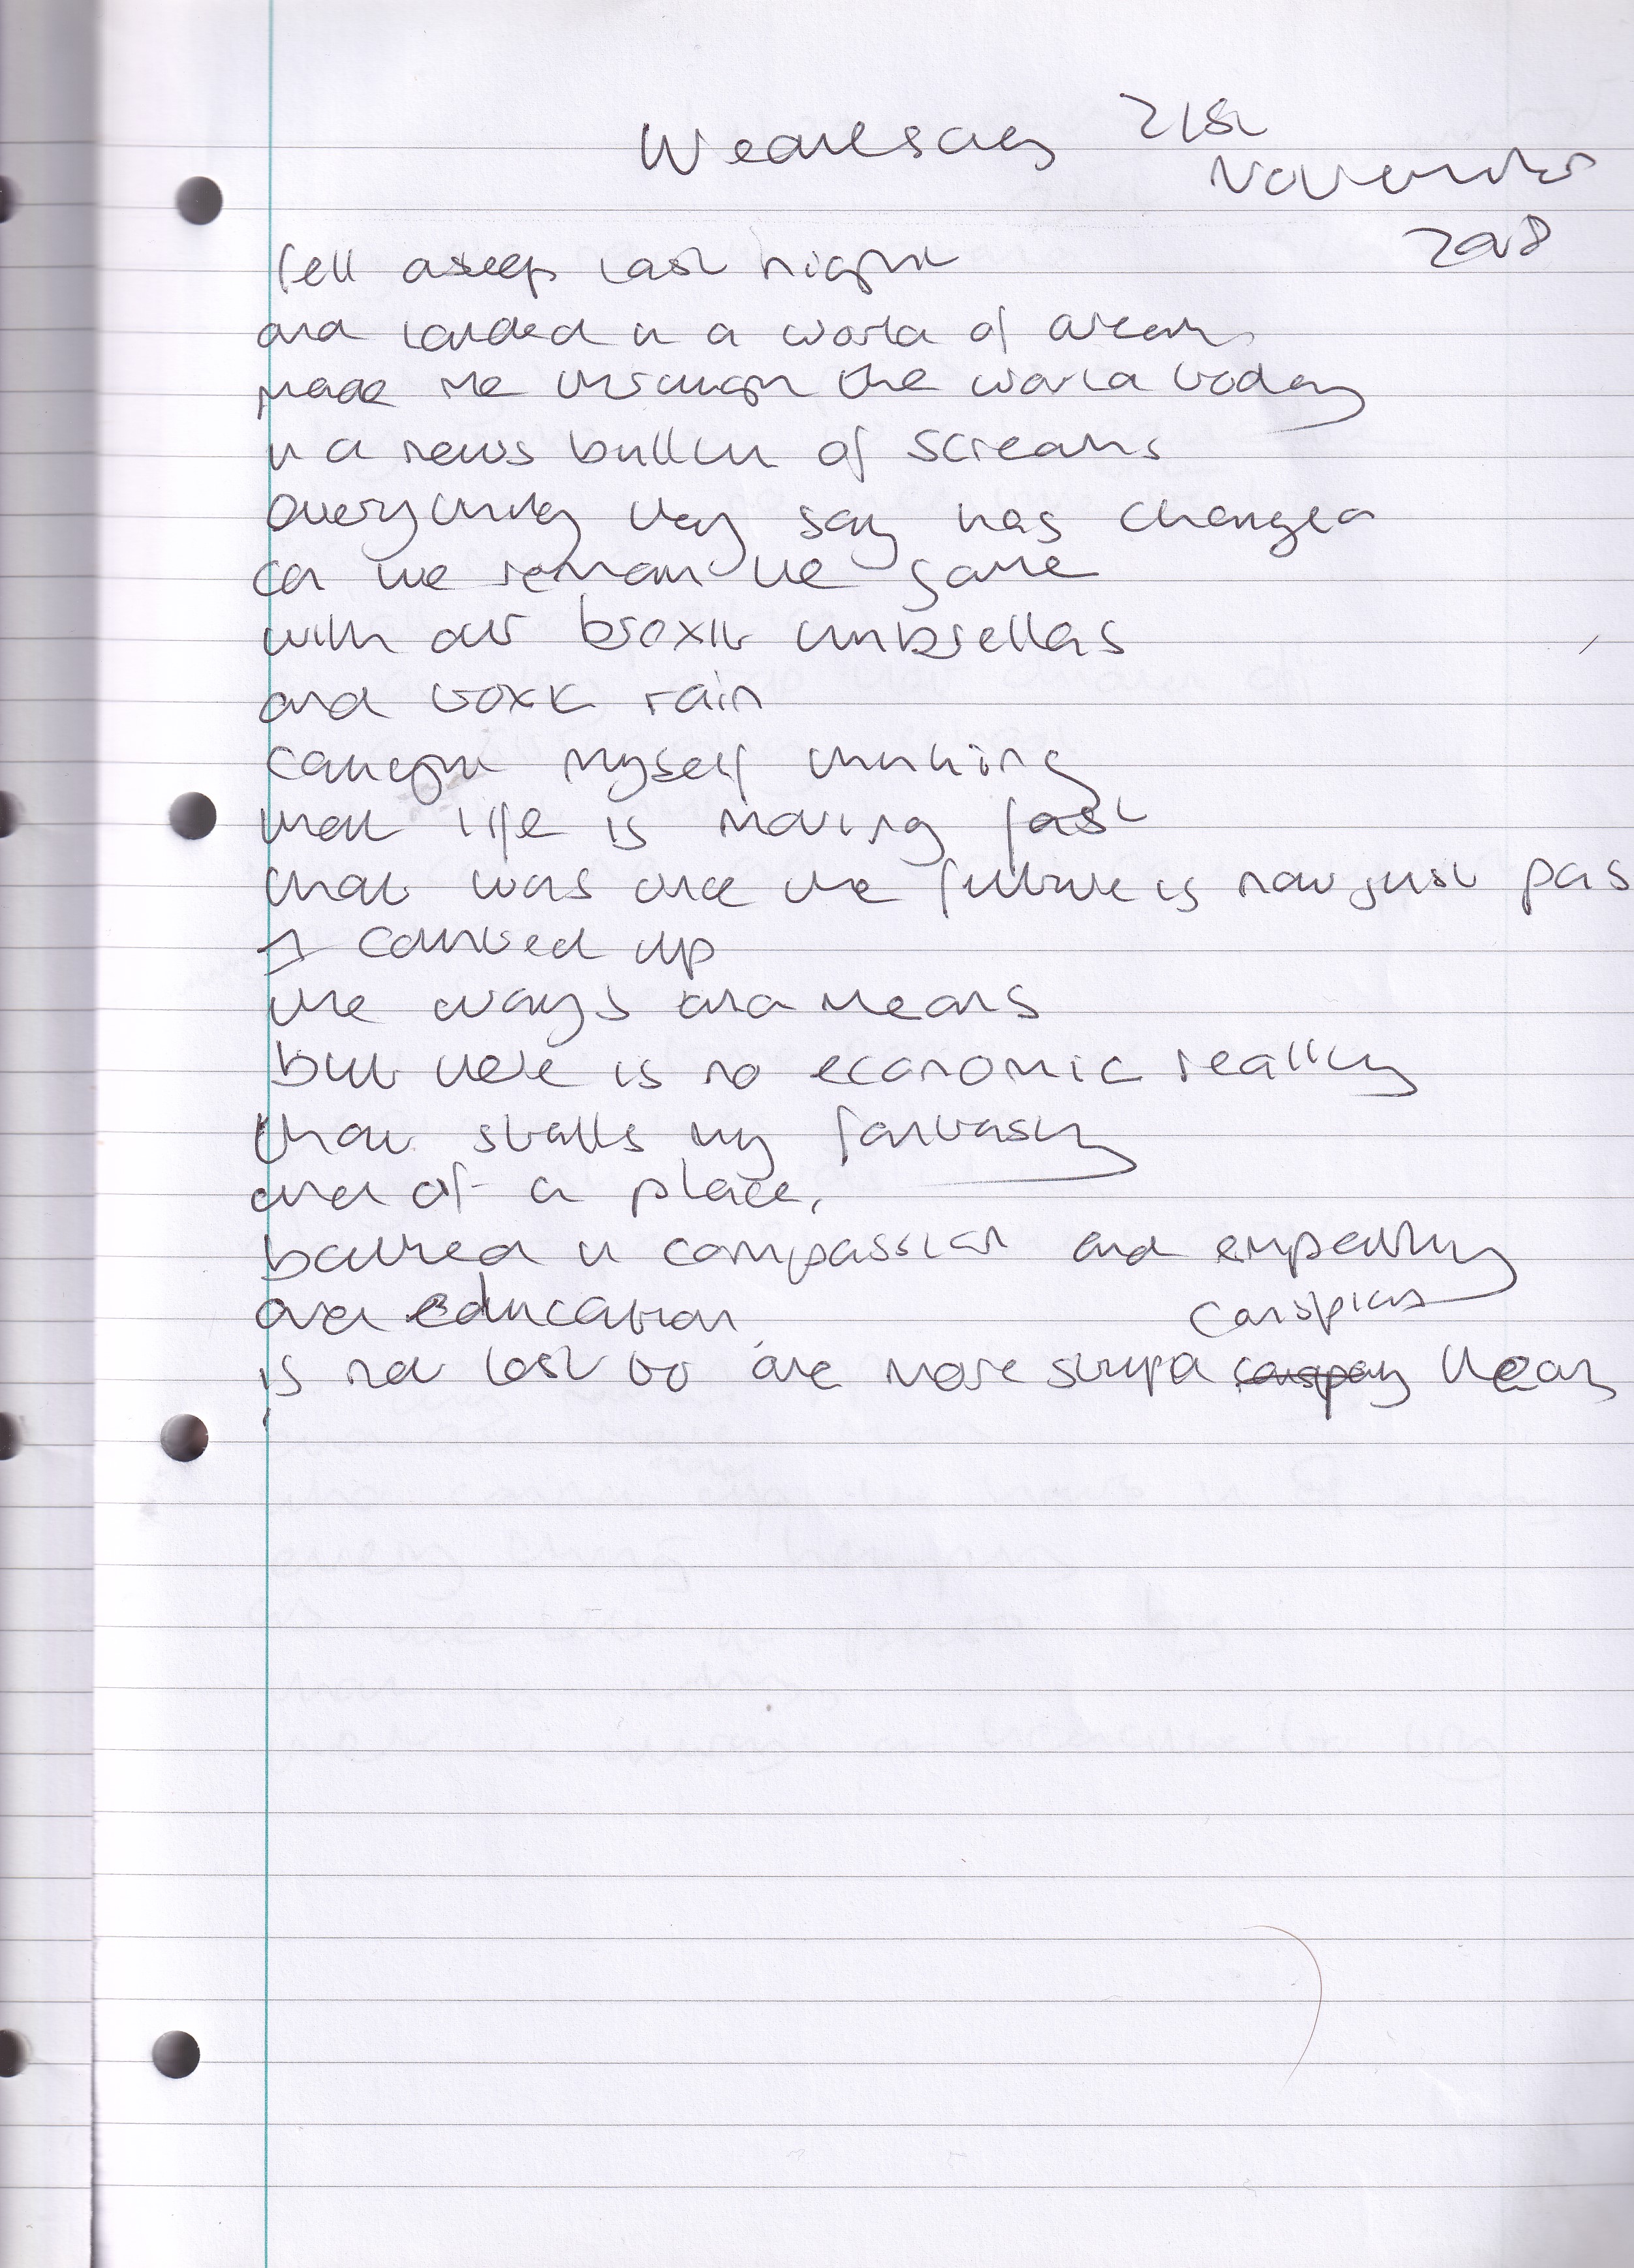 Wednesday 21st
November
2018
fell asleep last night
and landed in a world of dreams
made me through the world today
in a news bulletin of screams
everything they say has changed
can we remain the same
with our broxit umbrellas
and toxic rain
caught myself thinking
that life is moving fast
that was once the future is now just pas
I counted up
the ways and means
but there is no economic reality
that stalls my fantasy
and of a place,
bathed in compassion and empathy
and education
conspiracy
is not lost to one more stupid theory